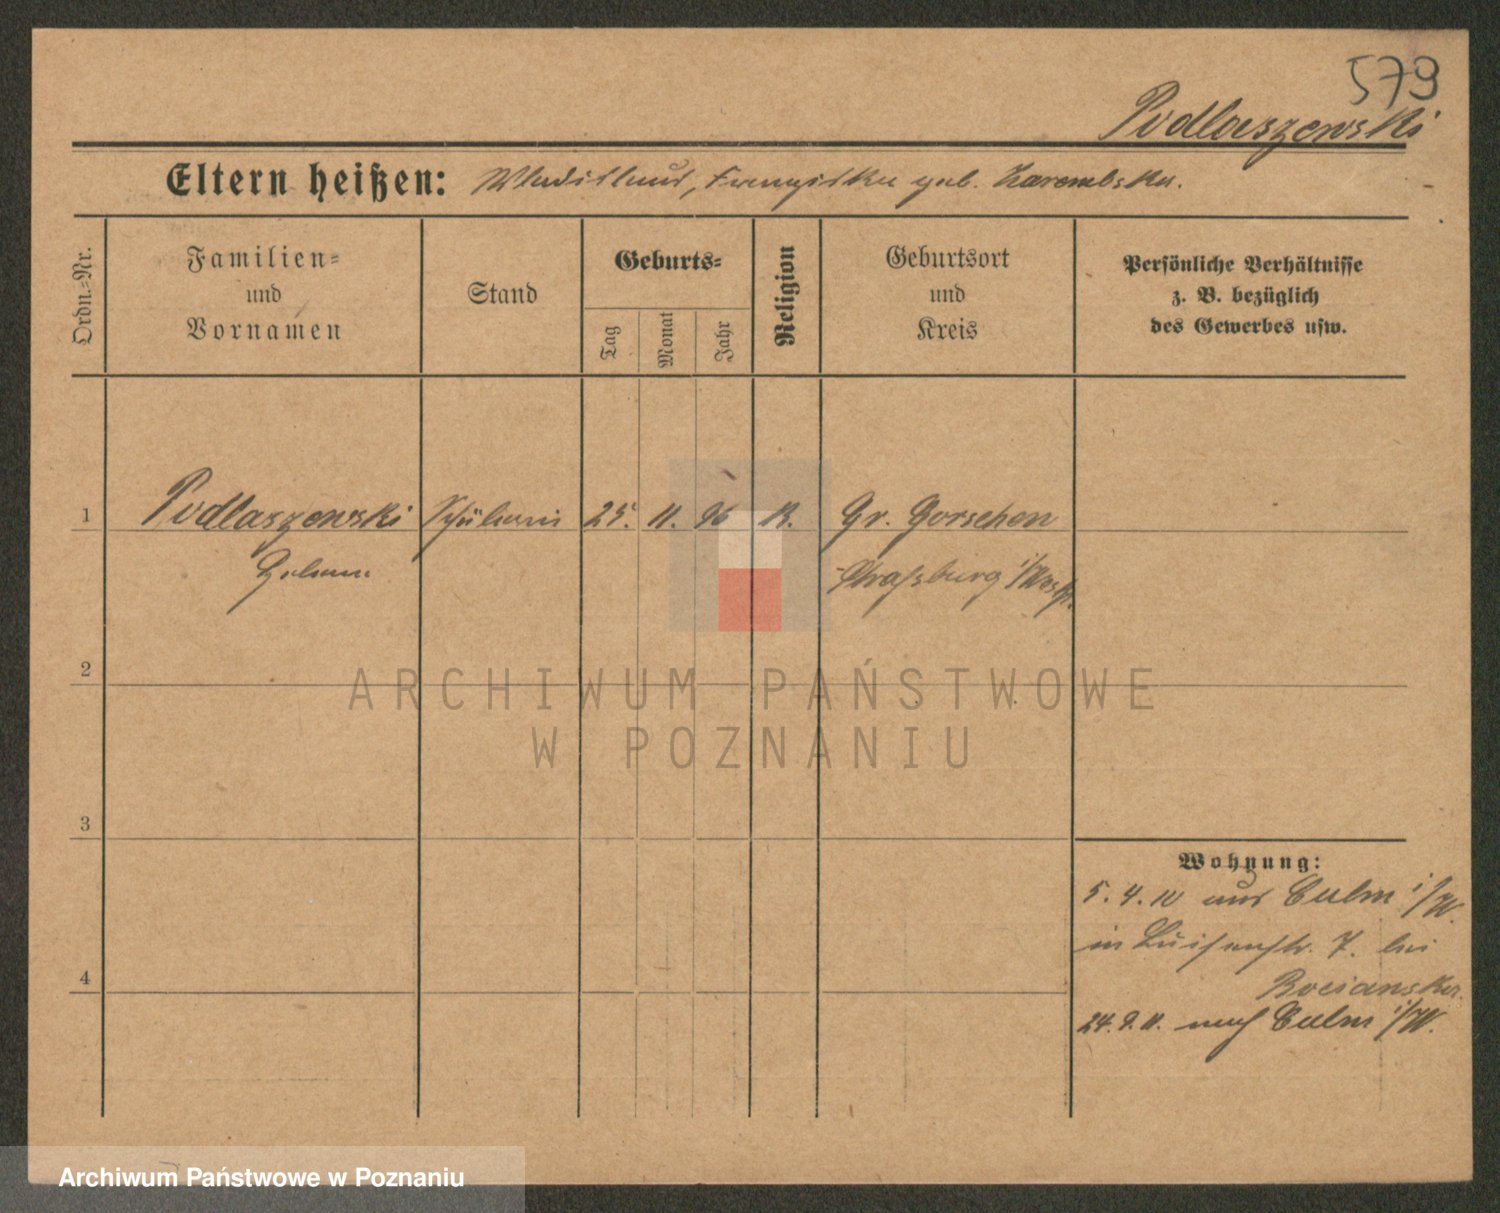 579
Podlaszewski
Eltern heißen: Wladislaus, Franziska geb. Zarembska.
Ordn.-Nr.
Familien-
und
Vornamen
Stand
Geburts-
Tag
Monat
Jahr
Religion
Geburtsort
und
Kreis
Persönliche Verhältnisse
z. B. bezüglich
des Gewerbes usw.
1 Podlaszewski Schülerin 25. 11. 96 K. Gr. Gorschen
Helene Straßburg i/Westpr.
2
ARCHIWUM PAŃSTWOWE
W POZNANIU
3
Wohnung:
5. 4. 10 aus Culm i/W.
in Luisenstr. 7. bei
Bocianska.
4
24. 9. 11. nach Culm i/W.
Archiwum Państwowe w Poznaniu